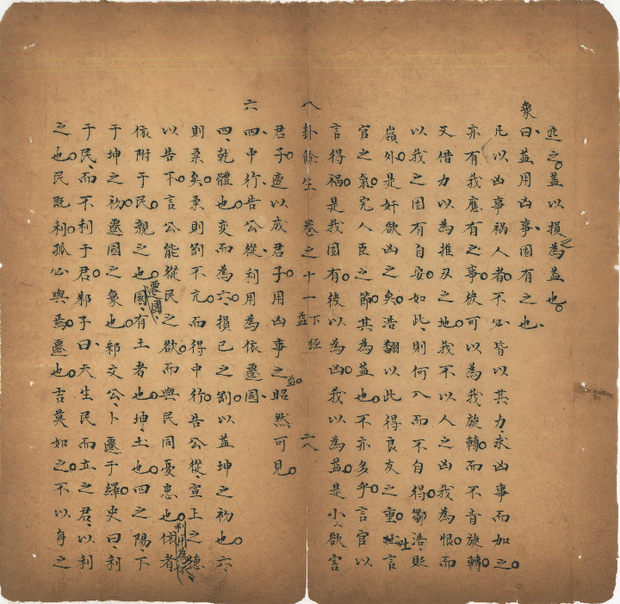 之。益以損之為益也。
象曰、益用凶事、固有之也、
凡以凶事禍人者、不必皆以其力求凶事而加之。
亦有我應有之事、彼可以為我旋轉而不肯旋轉。
又借力以為推刃之地。我不以人之凶我為恨而
以我之固有自安。如此、則何入而不自得。鄒浩貶
嶺外。是奸欲凶之矣。浩翻以此得良友之重。吐言
官之氣。完人臣之節。其為益也。不亦多乎。言官以
言得禍。是我固有。彼以為凶。我以為益。是小人欲害
八卦餘生 卷之十一 下經 益 二八
君子。適以成君子。用凶事之益昭然可見。
六四、中行告公從、利用為依遷國、
四、乾體也。變而為六。損己之剛以益坤之初也。六
則柔矣。柔則剛不亢而得中行。告公從、宣上之德
以告下。言公能從民之欲而與民同憂患也。利用為依、依者
依附于民。親之也。遷國、國有土者也。坤、土也。四之陽、下
于坤之初。遷國之象也。邾文公卜遷于繹。史曰、利
于民、而不利于君。邾子曰、天生民而立之君、以利
之也。民既利。孤必與焉。遷也。吉莫如之。不以身之